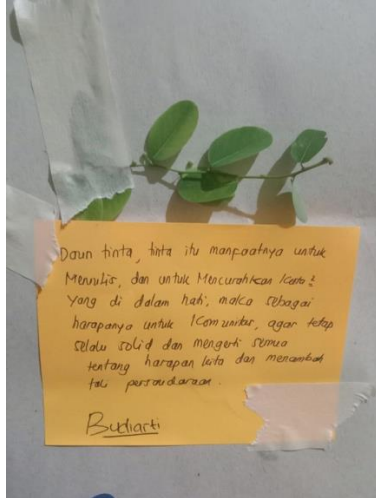 Daun tinta, tinta itu manfaatnya untuk
Menulis, dan untuk Mencurahkan kata²
yang di dalam hati, maka sebagai
harapanya untuk Komunitas, agar tetap
selalu solid dan mengerti semua
tentang harapan kita dan menambah
tali persaudaraan.
Budiarti